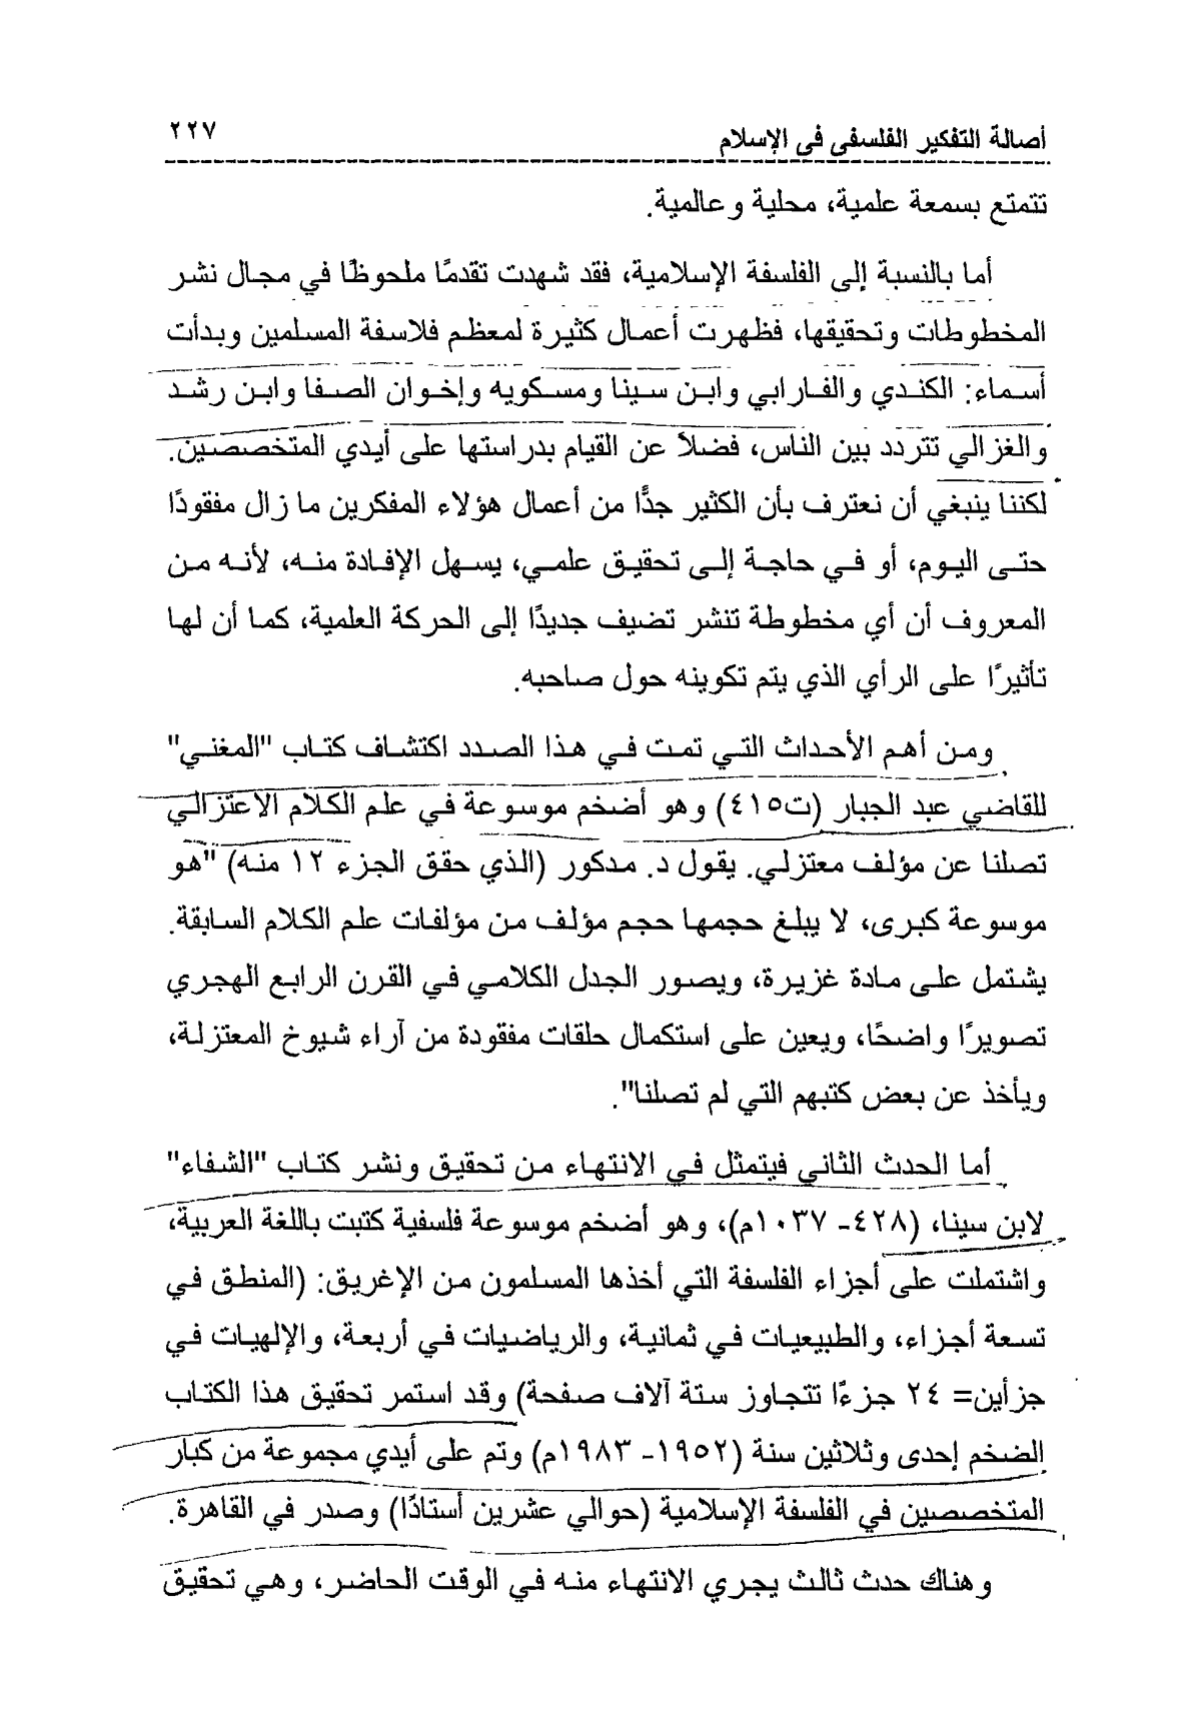 أصالة التفكير الفلسفى فى الإسلام ٢٢٧
تتمتع بسمعة علمية، محلية وعالمية.
أما بالنسبة إلى الفلسفة الإسلامية، فقد شهدت تقدمًا ملحوظًا في مجال نشر
المخطوطات وتحقيقها، فظهرت أعمال كثيرة لمعظم فلاسفة المسلمين وبدأت
أسماء: الكندي والفارابي وابن سينا ومسكويه وإخوان الصفا وابن رشد
والغزالي تتردد بين الناس، فضلاً عن القيام بدراستها على أيدي المتخصصين.
لكننا ينبغي أن نعترف بأن الكثير جدًّا من أعمال هؤلاء المفكرين ما زال مفقودًا
حتى اليوم، أو في حاجة إلى تحقيق علمي، يسهل الإفادة منه، لأنه من
المعروف أن أي مخطوطة تنشر تضيف جديدًا إلى الحركة العلمية، كما أن لها
تأثيرًا على الرأي الذي يتم تكوينه حول صاحبه.
ومن أهم الأحداث التي تمت في هذا الصدد اكتشاف كتاب "المغني"
للقاضي عبد الجبار (ت٤١٥) وهو أضخم موسوعة في علم الكلام الاعتزالي
تصلنا عن مؤلف معتزلي. يقول د. مدكور (الذي حقق الجزء ١٢ منه) "هو
موسوعة كبرى، لا يبلغ حجمها حجم مؤلف من مؤلفات علم الكلام السابقة.
يشتمل على مادة غزيرة، ويصور الجدل الكلامي في القرن الرابع الهجري
تصويرًا واضحًا، ويعين على استكمال حلقات مفقودة من آراء شيوخ المعتزلة،
ويأخذ عن بعض كتبهم التي لم تصلنا".
أما الحدث الثاني فيتمثل في الانتهاء من تحقيق ونشر كتاب "الشفاء"
لابن سينا، (٤٢٨- ١٠٣٧م)، وهو أضخم موسوعة فلسفية كتبت باللغة العربية،
واشتملت على أجزاء الفلسفة التي أخذها المسلمون من الإغريق: (المنطق في
تسعة أجزاء، والطبيعيات في ثمانية، والرياضيات في أربعة، والإلهيات في
جزأين= ٢٤ جزءًا تتجاوز ستة آلاف صفحة) وقد استمر تحقيق هذا الكتاب
الضخم إحدى وثلاثين سنة (١٩٥٢- ١٩٨٣م) وتم على أيدي مجموعة من كبار
المتخصصين في الفلسفة الإسلامية (حوالي عشرين أستاذًا) وصدر في القاهرة.
وهناك حدث ثالث يجري الانتهاء منه في الوقت الحاضر، وهي تحقيق